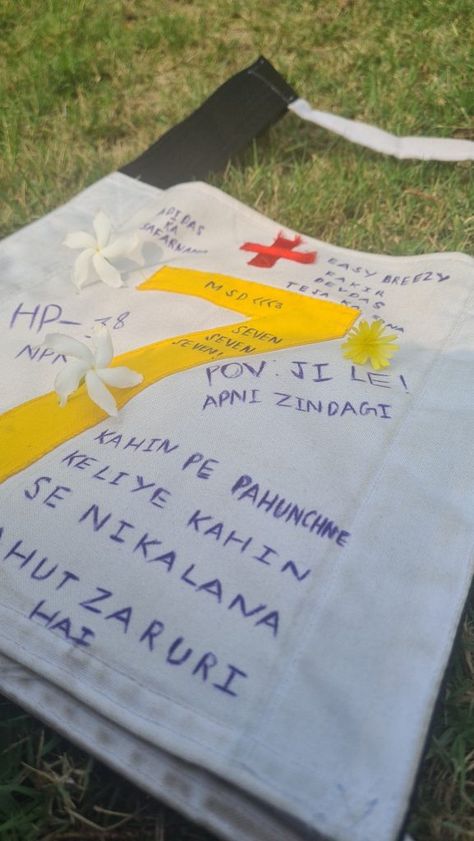 ADIDAS
KA
SAFARNAMA
EASY BREEZY
FAKIR
DEVDAS
TEJA KA
MSD <<<3
SEVEN
SEVEN
SEVEN!
HP-
NPK
POV. JI LE!
APNI ZINDAGI
KAHIN PE PAHUNCHNE
KELIYE KAHIN
SE NIKALANA
AHUT ZARURI
HAI